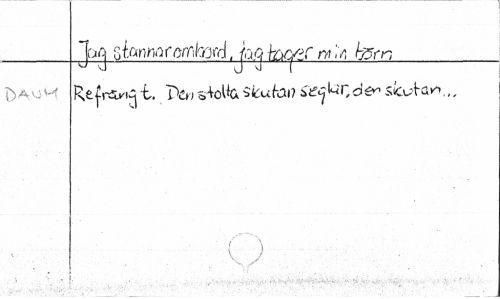 Jag stannar ombord, jag tager min törn
DAUM Refräng t. Den stolta skutan seglar, den skutan...